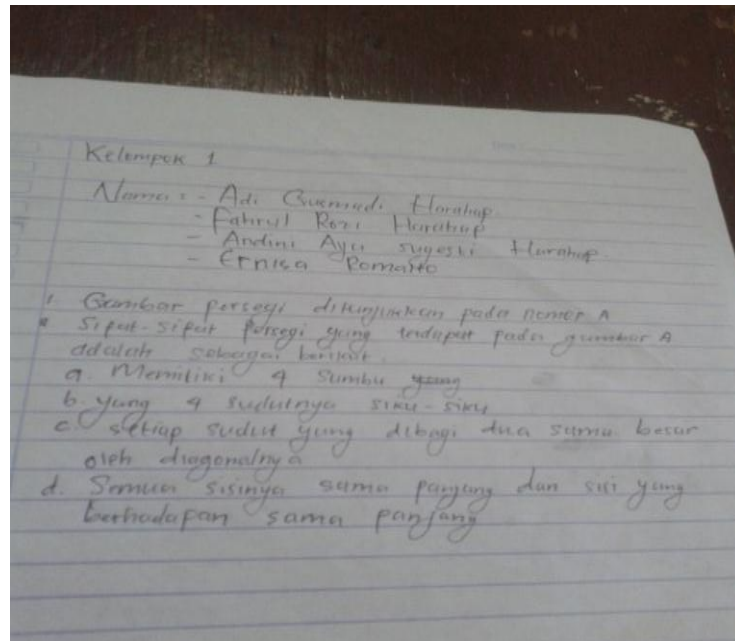 Kelompok 1
Nama : - Adi Gusmadi Harahap.
- Fahrul Rozi Harahap
- Andini Ayu sugesti Harahap.
- Ernisa Romaito
1. Gambar persegi ditunjukkan pada nomor A
Sipat-sipat persegi yang terdapat pada gambar A
adalah sebagai berikut.
a. Memiliki 4 sumbu yang
b. yang 4 sudutnya siku-siku
c. setiap sudut yang dibagi dua sama besar
oleh diagonalnya
d. Semua sisinya sama panjang dan sisi yang
berhadapan sama panjang